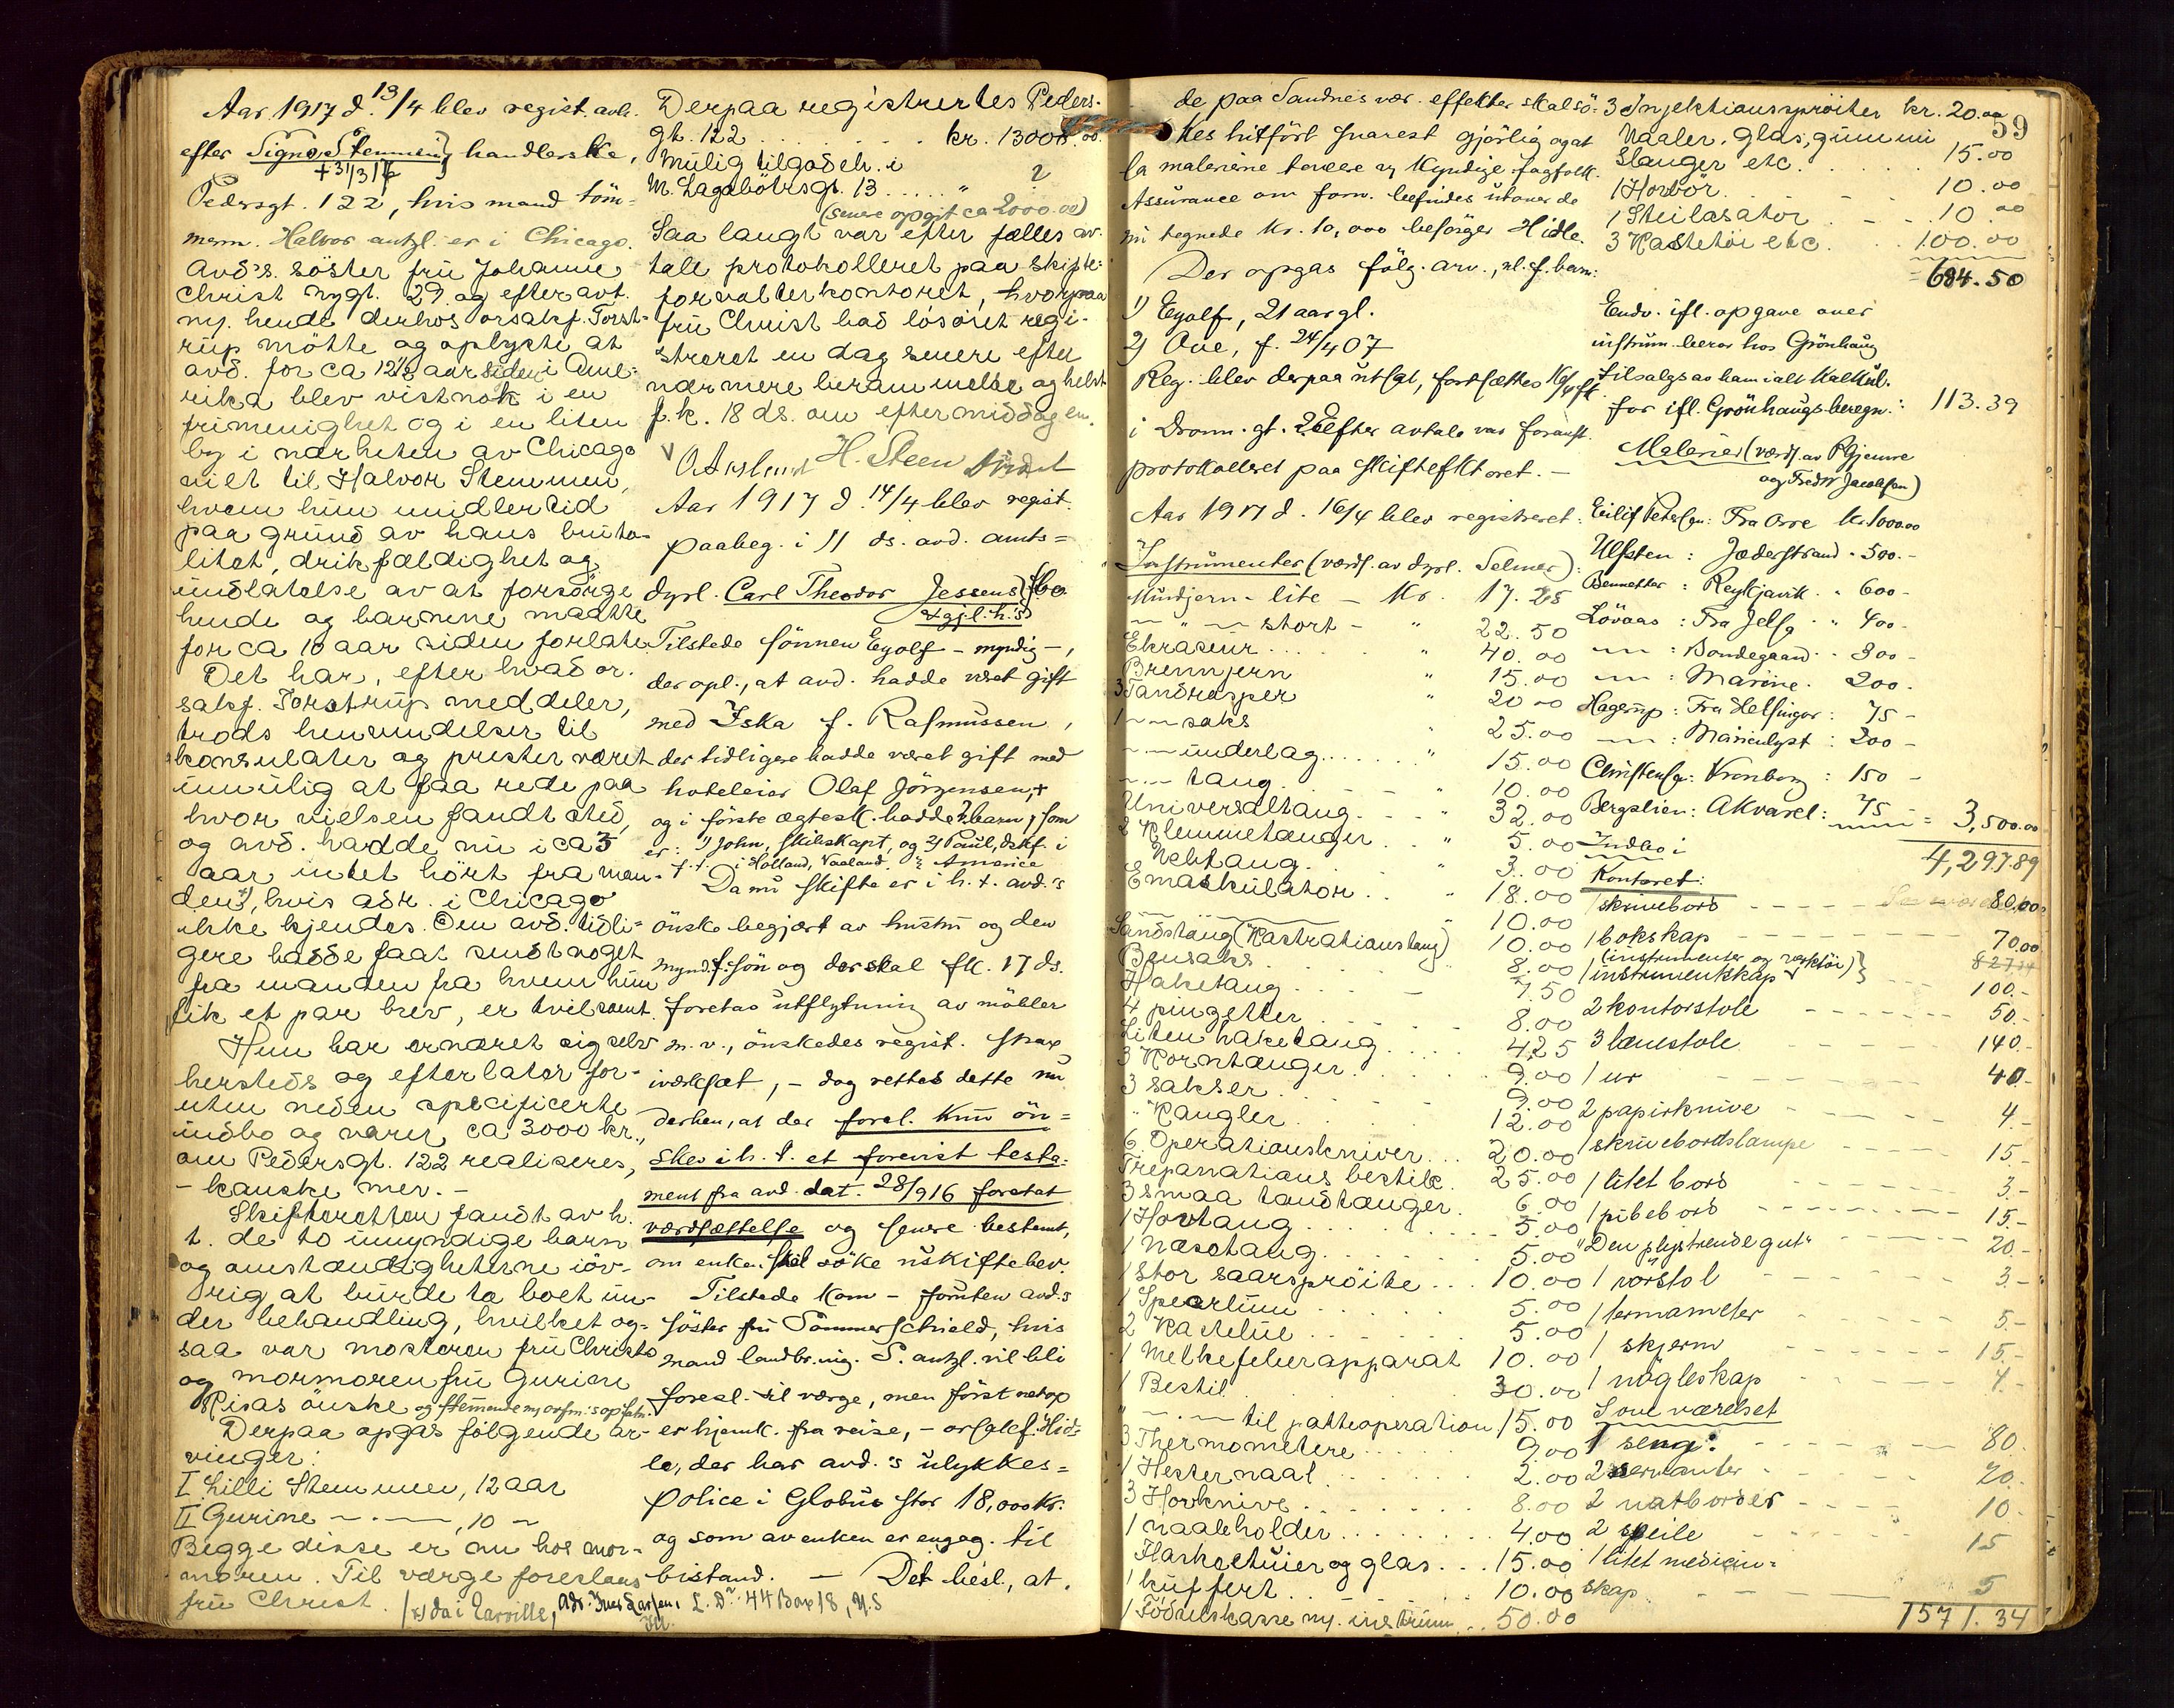 Aar 1917 d. 13/4 blev regist. avh.
efter Signe Stemmen, handlerske,
+ 31/3 17
Pedersgt. 122, hvis mand töm-
merm. Halvor antgl. er i Chicago.
Avd's. söster frú Johanne
Christ nygt. 29 og efter avt.
m. hende derhos orsakf. Torst-
rúp mötte og oplyste at
avd. for ca 12½ aar siden i Ame-
rika blev vistnok i en
frimenighet og i en liten
by i nærheten av Chicago
viet til Halvor Stemmen,
hvem hún imidlertid
paa grúnd av hans brúta-
litet, drikfældighet og
úndlatelse av at forsörge
hende og barnene maatte
for ca 10 aar siden forlate.
Det har, efter hvad or.
sakf. Torstrúp meddeler,
trods henvendelser til
konsulater og prester været
úmúlig at faa rede paa
hvor vielsen fandt sted,
og avd. hadde nú i ca 5
aar intet hört fra man-
den x), hvis adr. i Chicago
ikke kjendes. Om avd. tidli-
gere hadde faat sendt noget
fra manden fra hvem hún
fik et par brev, er tvilsomt.
Hún har ernæret sig selv
hersteds og efterlater for-
úten neden specificerte
indbo og varer ca 3000 kr.,
om Pedersgt. 122 realiseres,
– kanske mer. –
Skifteretten fandt av h.
t. de to úmyndige barn
og omstændigheterne iöv-
rig at búrde ta boet ún-
der behandling, hvilket og-
saa var mosteren frú Christs
og mormoren frú Gúrine
Risas önske og stemmende m. orsfm.'s opfatn.
Derpaa opgas fölgende ar-
vinger:
I Lilli Stemmen, 12 aar
II Gurine – " –, 10 –
Begge disse er nú hos mor-
moren. Til værge foreslaaes
frú Christ.
Derpaa registrertes Peders-
gt. 122 . . . . . . kr. 13000.00
múlig tilgodeh. i
M. Lagabötersgt. 13 . . . . . " ?
(senere opgit ca 2000.00)
Saa langt var efter fælles av-
tale protokolleret paa skifte-
forvalterkontoret, hvorpaa
frú Christ bad lösöret regi-
streret en dag senere efter
nærmere berammelse og helst
f.k. 18 ds. om eftermiddagen.
H. Steen
Aar 1917 d. 14/4 blev regist.
paabeg. i 11 ds. avd. amts-
dyrl. Carl Theodor Jessens bo
Tilstede sönnen Eyolf – myndig –,
der opl., at avd. hadde været gift
med Iska f. Rasmússen,
der tidligere hadde været gift med
hoteleier Olaf Jörgensen, +
og i förste ægtesk. hadde 2 barn, som
er: 1) John, skibskapt, og 2) Paúl, dskf. i
t. t. i Holland, Vaaland. " America
Da nú skifte er i h. t. avd.'s
önske begjært av hústrú og den
mynd. sön og der skal fk. 17 ds.
foretas útflytning av möbler
m. v., önskedes regist. strax
iverksat, – dog rettes dette nú
derhen, at der forel. kún ön-
skes i h. t. et forevist testa-
ment fra avd. dat. 28/9 16 foretat
værdsættelse og senere bestemt,
om enken skal söke úskiftebev.
Tilstede kom – forúten avd.s
söster frú Sömmerschield, hvis
mand landbr.ing. S. antgl. vil bli
foresl. til værge, men först netop
er hjemk. fra reise, – orsakf. Hid-
le, der har avd.'s úlykkes-
police i Globús stor 18,000 kr.
og som av enken er engag. til
bistand. – Det besl., at
x) da i Earville, adr. Iver Larsen, L. Dr. 44 Box 18, U.S
Ill.
59
de paa Sandnes vær. effekter skal sö-
kes hitfört snarest gjörlig og at
la malerierne taxere av kyndige fagfolk.
Assúrance om forn. befindes útover de
nú tegnede kr. 10,000 besörger Hidle.
Der opgas fölg. arv., nl. f. barn:
1) Eyolf, 21 aar gl.
2) Ove, f. 24/4 07
Reg. blev derpaa útsat, fortsættes 16/4 ft.
i Dronn. gt. 22 efter avtale var foranst.
protokolleret paa skiftefktoret. –
Aar 1917 d. 16/4 blev registreret:
Instrúmenter (værds. av dyrl. Selmer):
Múndjern – lite – Kr. 17.25
– " – stort – " 22.50
Ekraseúr . . . " 40.00
Brennjern " 15.00
3 Tandrasper " 20.00
1 – " – saks " 25.00
– " – únderlag . . . " 15.00
– " – tang . . " 10.00
Universaltang . . . " 32.00
2 Klemmetænger . . " 5.00
Nebtang . . " 3.00
Emaskúlator . . " 18.00
10.00
Tandstang (Kastrationstang) 10.00
Bensaks . . . 8.00
Haketang . . . 7.50
4 pinzetter . . . 8.00
Liten haketang . . . 4,25
3 Korntænger . . . 9.00
3 sakser . . . 9.00
" Kangler . . . 12.00
6 Operationskniver . . . 20.00
Trepanations bestik . . 25.00
3 smaa tandtænger . . 6.00
1 Hovtang . . . 5.00
1 Næsetang . . . 5.00
1 stor saarspröite . . . 10.00
1 Specúlúm . . . 5.00
2 Katetúe . . . 5.00
1 Melkefeberapparat 10.00
1 Bestik . . . 30.00
" – . – til patteoperation 15.00
3 Thermometere . . . 9.00
1 Hesternaal . . . 2.00
3 Hovknive . . . 8.00
1 naaleholder . . . 4.00
Harkaetúier og glas . . . 15.00
1 kúffert . . . 10.00
1 Födselskasse m. instrúm. . . 50.00
3 Injektionsspröiter kr. 20.00
Naaler, glas, gúmmi
slanger etc. . . . 15.00
1 Hovbör . . . 10.00
1 Steilasator . . . 10.00
3 Kastetöi etc . . . 100.00
= 684.50
Endv. ifl. opgave over
instrúm. beror hos Grönhaúg
tilsalgs av ham ialt kalkúl.
for ifl. Grönhaúgs beregn.: 113.39
Malerier (værds. av P Gjemre
og Fredr Jacobsen)
Eilif Petersen: Fra Orre kr. 1000.00
Ulfsten: Jæderstrand " 500.–
Bennetter: Reykjavik " 600–
Lövaas: Fra Jelsa " 400–
– " – : Bondegaard " 300–
– " – : Marine " 200.
Hagerúp: Fra Helsingör: 75–
– " – : Marienlyst: 200–
Christensen: Kronborg: 150–
Bergslien: Akvarel: 75 = 3,500.00
Indbo i 4,297.89
Kontoret:
1 skrivebord – – – – 80.00
1 bokskap – – – 70.00
(instrúmenter og verktöi)
1 instrúmentskap – – – 100.–
2 kontorstole – – – 50.–
3 lænestole – – – 140.–
1 úr – – – 40–
2 papirknive – – – 4.–
1 skrivebordslampe – – – 15.–
1 litet bord – – – 3.–
1 pibebord – – – 15.–
"Den plystrende gut" – – – 20.–
1 rörstol – – – 3–
1 termometer – – – 5–
1 skjerm – – – 15.–
1 nögleskap – – – 4.–
Soveværelset
1 seng: – – – 80.
2 servanter – – – 20.
2 natborder – – – 10.
2 speile – – – 15
1 litet medicin-
skap – – – 5
1571.34